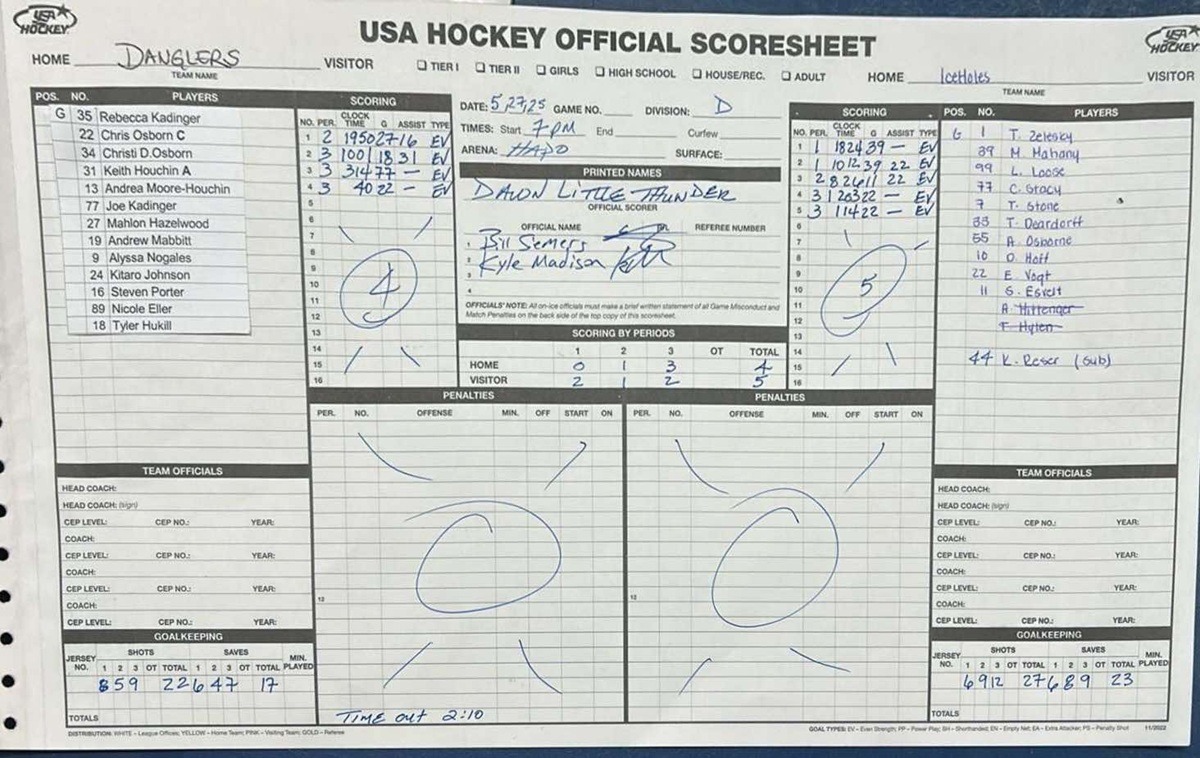 USA HOCKEY
USA HOCKEY OFFICIAL SCORESHEET
USA HOCKEY
HOME DANGLERS VISITOR
TEAM NAME
☐ TIER I ☐ TIER II ☐ GIRLS ☐ HIGH SCHOOL ☐ HOUSE/REC. ☐ ADULT
HOME IceHoles VISITOR
TEAM NAME
POS. NO. PLAYERS
G 35 Rebecca Kadinger
22 Chris Osborn C
34 Christi D.Osborn
31 Keith Houchin A
13 Andrea Moore-Houchin
77 Joe Kadinger
27 Mahlon Hazelwood
19 Andrew Mabbitt
9 Alyssa Nogales
24 Kitaro Johnson
16 Steven Porter
89 Nicole Eller
18 Tyler Hukill
SCORING
NO. PER. CLOCK TIME G ASSIST TYPE
1 2 1950 27 16 EV
2 3 1001 18 31 EV
3 3 314 77 - EV
4 3 40 22 - EV
5
6
7
8
9
10
11
12
13
14
15
16
4
DATE: 5,27,25 GAME NO. DIVISION: D
TIMES: Start 7PM End Curfew
ARENA: HAPO SURFACE:
PRINTED NAMES
DAWN LITTLE THUNDER
OFFICIAL SCORER
OFFICIAL NAME REFEREE NUMBER
1 Bill Semers
2 Kyle Madison
3
4
OFFICIALS' NOTE: All on-ice officials must make a brief written statement of all Game Misconduct and
Match Penalties on the back side of the top copy of this scoresheet.
SCORING BY PERIODS
1 2 3 OT TOTAL
HOME 0 1 3 4
VISITOR 2 1 2 5
SCORING
NO. PER. CLOCK TIME G ASSIST TYPE
1 1 1824 39 - EV
2 1 1012 39 22 EV
3 2 826 11 22 EV
4 3 1203 22 - EV
5 3 114 22 - EV
6
7
8
9
10
11
12
13
14
15
16
5
POS. NO. PLAYERS
G 1 T. Zelesky
39 M. Mahany
99 L. Loose
77 C. Stacy
7 T. Stone
33 T. Deardorff
55 A. Osborne
10 O. Hoff
22 E. Vogt
11 G. Esvelt
A Hittenger
F Hylen
44 K. Reser (sub)
PENALTIES
PER. NO. OFFENSE MIN. OFF START ON
12
Time out 2:10
PENALTIES
PER. NO. OFFENSE MIN. OFF START ON
12
TEAM OFFICIALS
HEAD COACH:
HEAD COACH: (sign)
CEP LEVEL: CEP NO.: YEAR:
COACH:
CEP LEVEL: CEP NO.: YEAR:
COACH:
CEP LEVEL: CEP NO.: YEAR:
COACH:
CEP LEVEL: CEP NO.: YEAR:
GOALKEEPING
JERSEY NO. SHOTS SAVES MIN. PLAYED
1 2 3 OT TOTAL 1 2 3 OT TOTAL
8 5 9 22 6 4 7 17
TOTALS
TEAM OFFICIALS
HEAD COACH:
HEAD COACH: (sign)
CEP LEVEL: CEP NO.: YEAR:
COACH:
CEP LEVEL: CEP NO.: YEAR:
COACH:
CEP LEVEL: CEP NO.: YEAR:
COACH:
CEP LEVEL: CEP NO.: YEAR:
GOALKEEPING
JERSEY NO. SHOTS SAVES MIN. PLAYED
1 2 3 OT TOTAL 1 2 3 OT TOTAL
6 9 12 27 6 8 9 23
TOTALS
DISTRIBUTION: WHITE - League Offices; YELLOW - Home Team; PINK - Visiting Team; GOLD - Referee
GOAL TYPES: EV - Even Strength; PP - Power Play; SH - Shorthanded; EN - Empty Net; EA - Extra Attacker; PS - Penalty Shot 11/2022